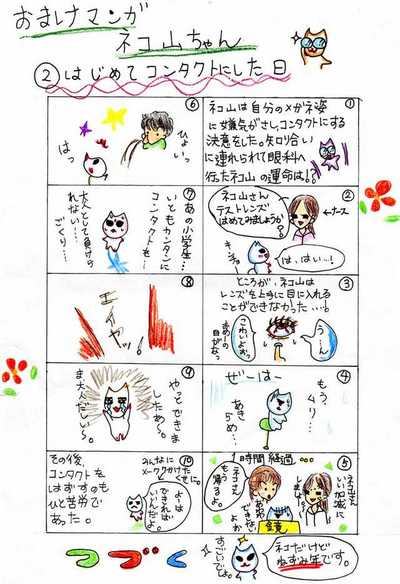 おまけマンガ
ネコ山ちゃん
②はじめてコンタクトにした日
①
ネコ山は自分のメガネ姿
に嫌気がさし、コンタクトにする
決意をした。知り合い
に連れられて眼科へ
行ったネコ山の運命は!?
②
ネコ山さん
テストレンズ
はめてみましょうか?
←ナース
キンチョー
は、はい…!
③
ところが、ネコ山は
レンズを上手に目に入れる
ことができなかった…!
う…ん
こわいよぉ。
④
もう、
ムリ…
あきらめ…
ぜーはー
⑤
1時間経過…
ネコ山さん
いい加減に
しましょ
ネコさん
もう
帰るよ。
鏡
⑥
ひょいっ
はっ
⑦
あの小学生…
いともカンタンに
コンタクトを…
大人として負けら
れない…
ごくり…
⑧
エイヤッ!
⑨
やっとできま
したぁ〜。
ま、大人だしぃ〜。
⑩
みんなに
メーワクかけたくせに
よーは
できれば
いいんだよ。
その後、
コンタクトを
はずすのも
ひと苦労で
あった。
つづく
すごいでしょ。
ネコだけど
ねずみ年です。